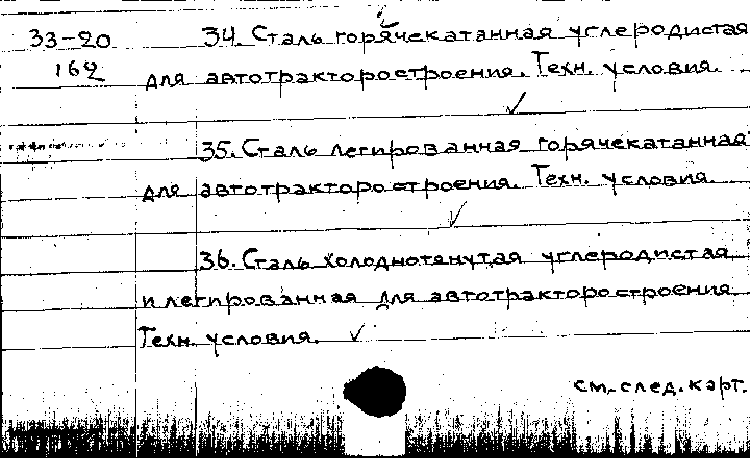 33-20 34. Сталь горячекатанная углеродистая
162 для автотракторостроения. Техн. условия.
35. Сталь легированная горячекатанная
для автотракторостроения. Техн. условия.
36. Сталь холоднотянутая углеродистая
и легированная для автотракторостроения
Техн. условия.
см. след. карт.